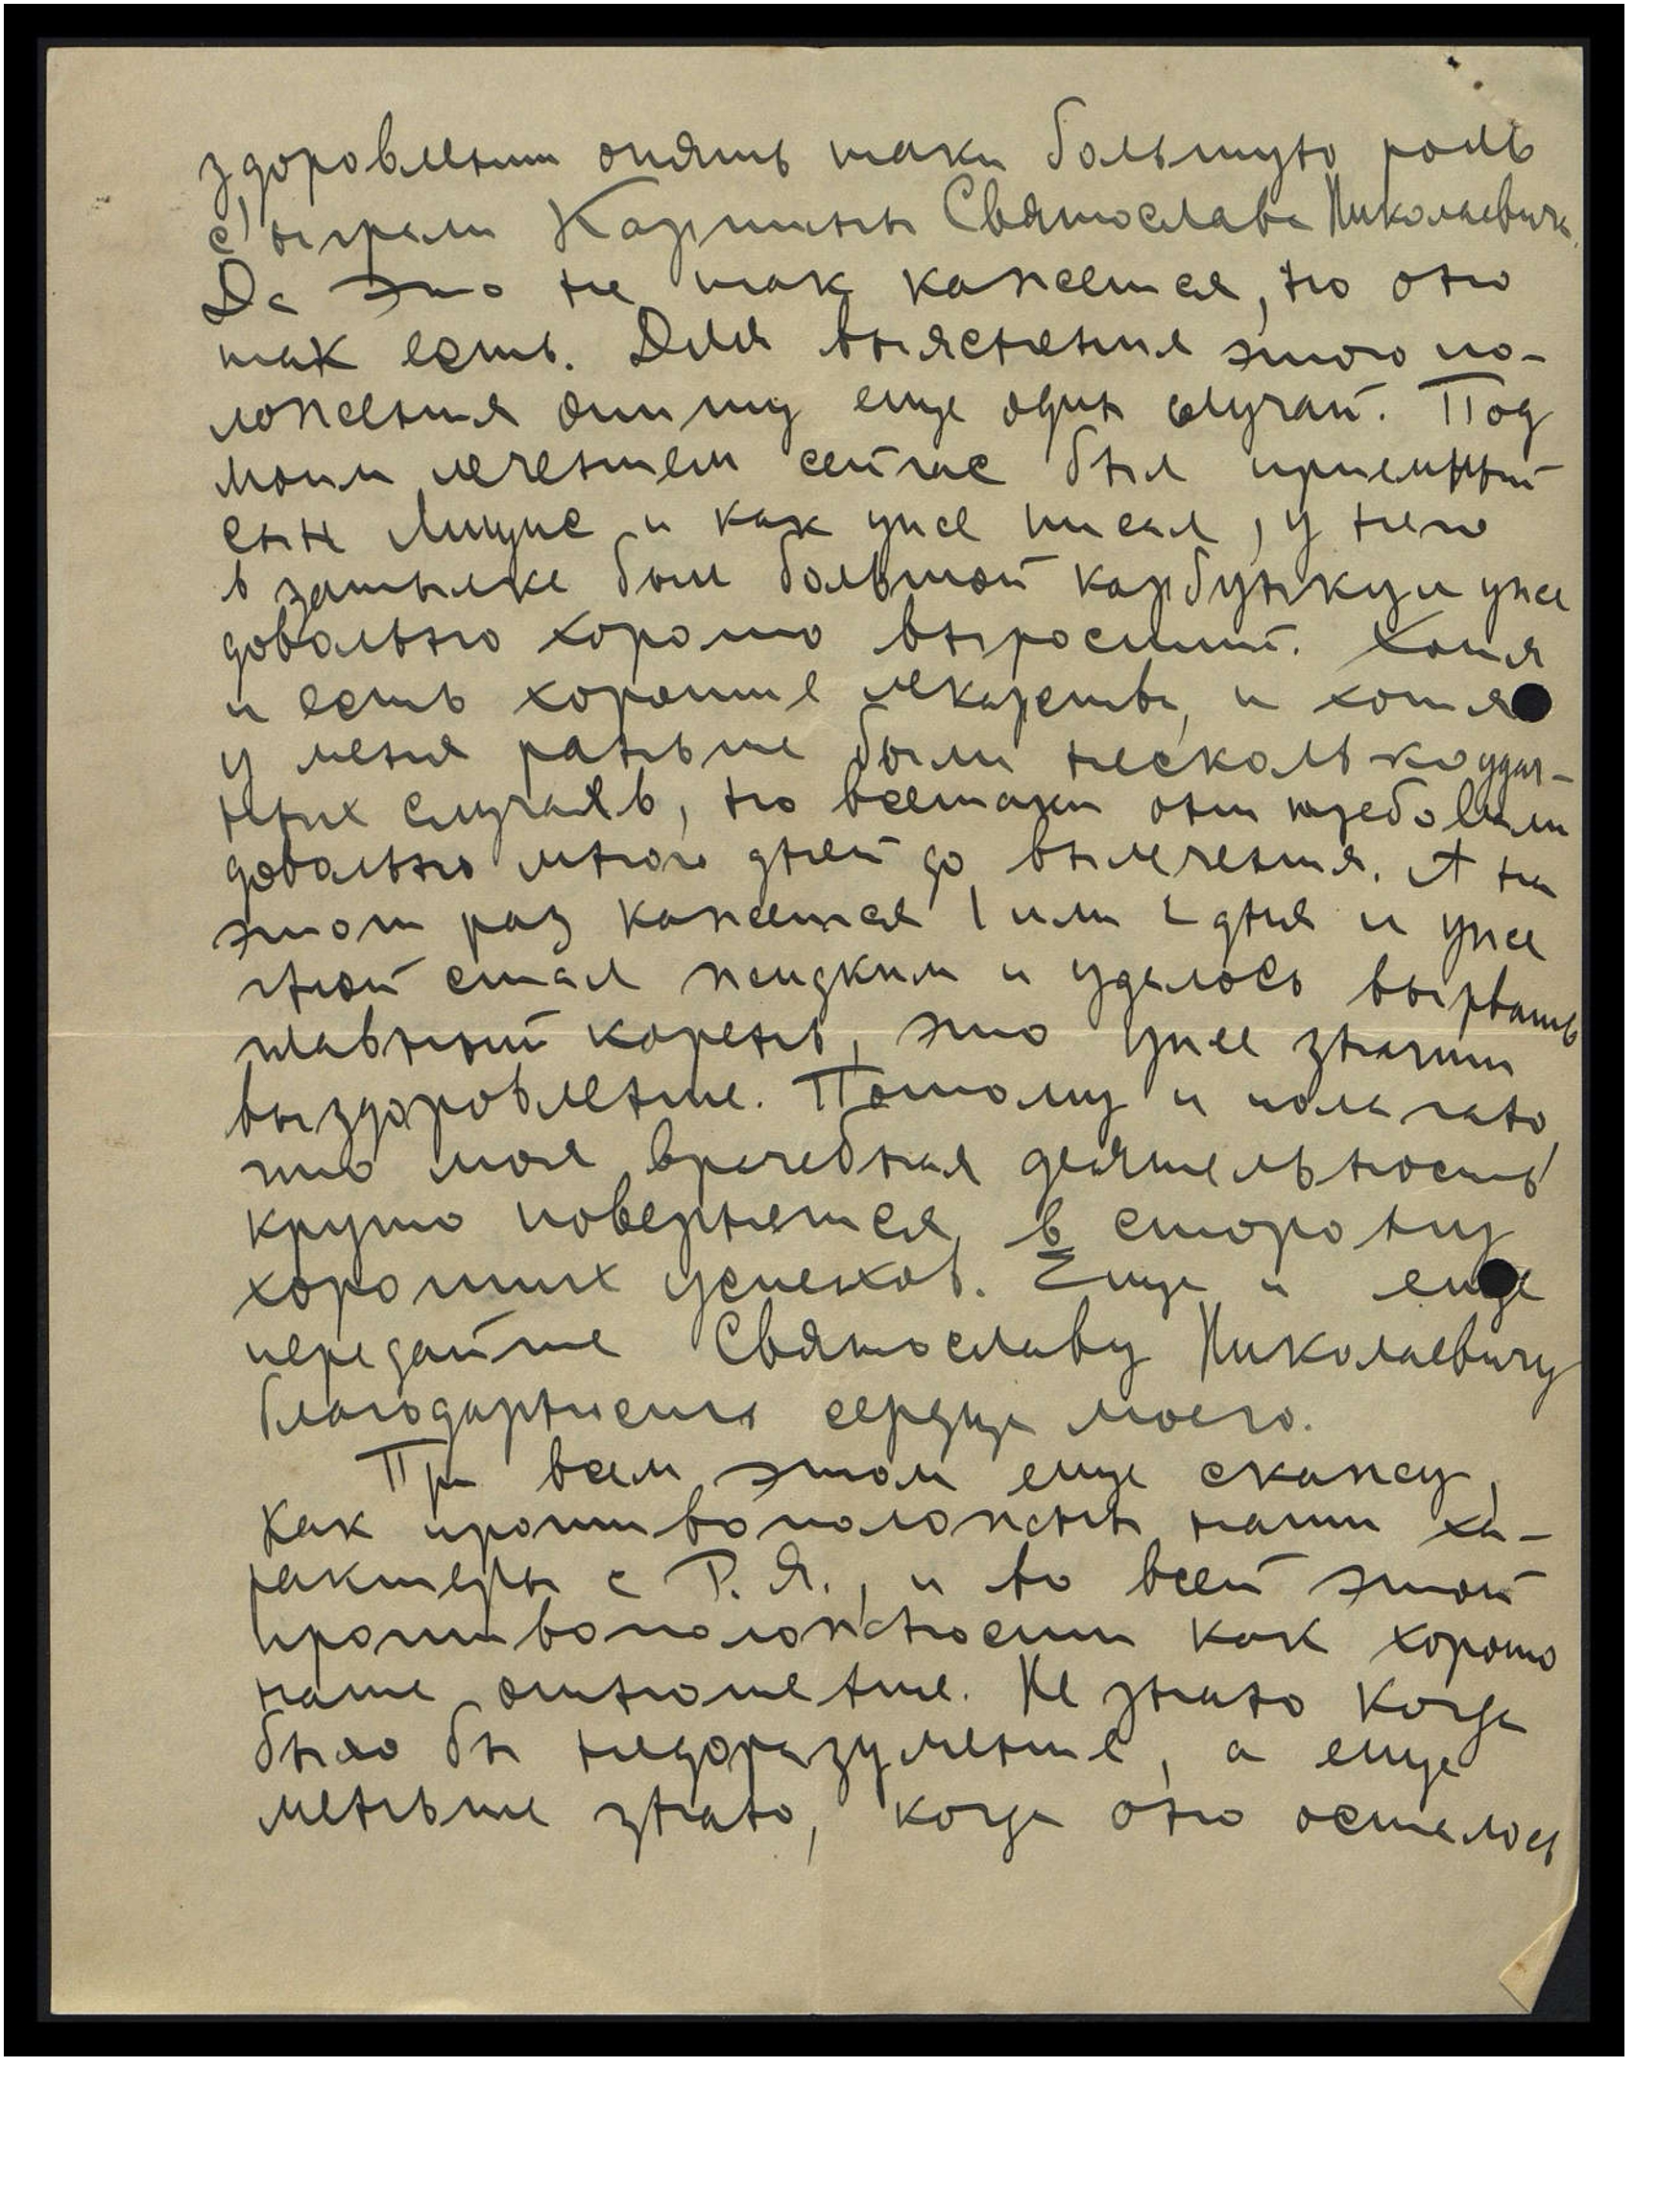 здоровлении опять таки большую роль
с'ыграли Картины Святослава Николаевича.
Да это не так кажется, но оно
так есть. Для выяснения этого по-
ложения опишу еще один случай. Под
моим лечением сейчас был приемный
сын и как уже писал, у него
в затылке был большой карбункул уже
довольно хорошо выросший. Хотя
и есть хорошие лекарства, и хотя
у меня раньше были несколько удач-
ных случаев, но всетаки они требовали
довольно много дней до вылечения. А на
этот раз кажется 1 или 2 дня и уже
гной стал жидким и удалось вырвать
главный корень, это уже значит
выздоровление. Потому и полагаю,
что моя врачебная деятельность
круто повернется в сторону
хороших успехов. Еще и еще
передайте Святославу Николаевичу
благодарность сердца моего.
При всем этом еще скажу,
как противоположны наши ха-
рактеры с Р. Я., и во всей этой
противоположности как хорошо
наше отношение. Не знаю когда
было бы недоразумение, а еще
меньше знаю, когда оно осталось